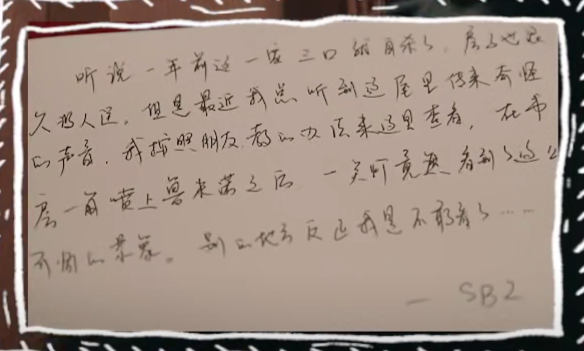 听说一年前这一家三口都自杀了，房子也很
久都人区，但是最近我总听到这屋里传来奇怪
的声音，我按照朋友教的办法来这里查看，在书
房一角喷上鲁米诺之后，一关灯竟然看到了这么
可怕的景象。别的地方反正我是不敢看了……
— SB2